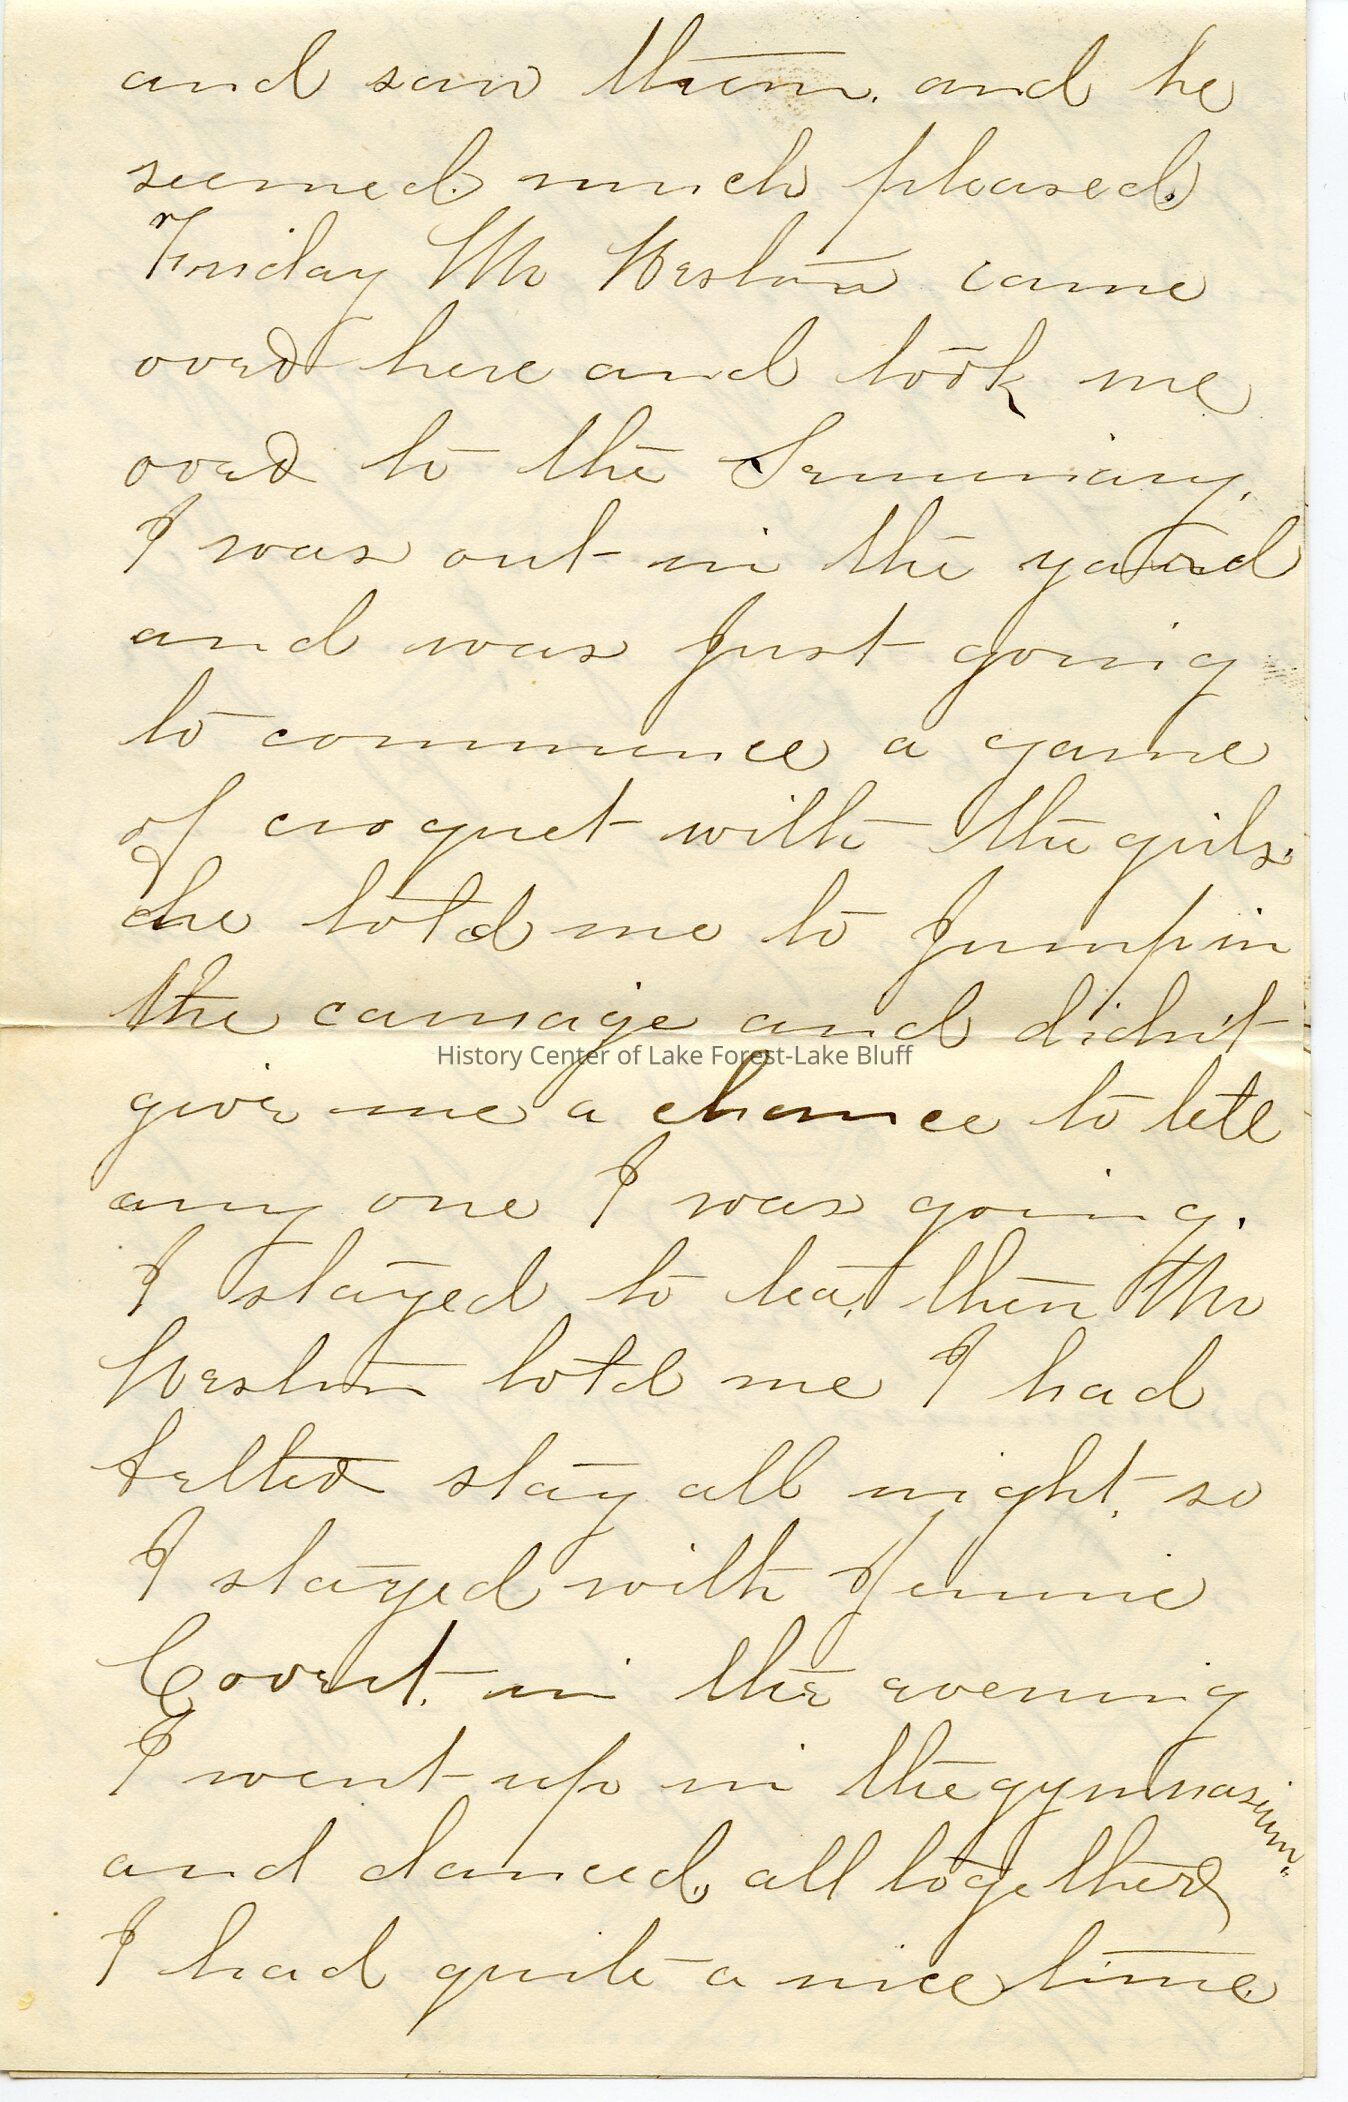 and saw them. and he
seemed much pleased.
Friday Mr Weston came
over here and took me
over to the Seminary.
I was out in the yard
and was just going
to commence a game
of croquet with the girls.
he told me to jump in
the carriage and didn't
give me a chance to tell
any one I was going.
I stayed to tea, then Mr
Weston told me I had
better stay all night, so
I stayed with Jennie
Covert. in the evening
I went up in the gymnasium.
and danced, all together
I had quite a nice time.
History Center of Lake Forest-Lake Bluff